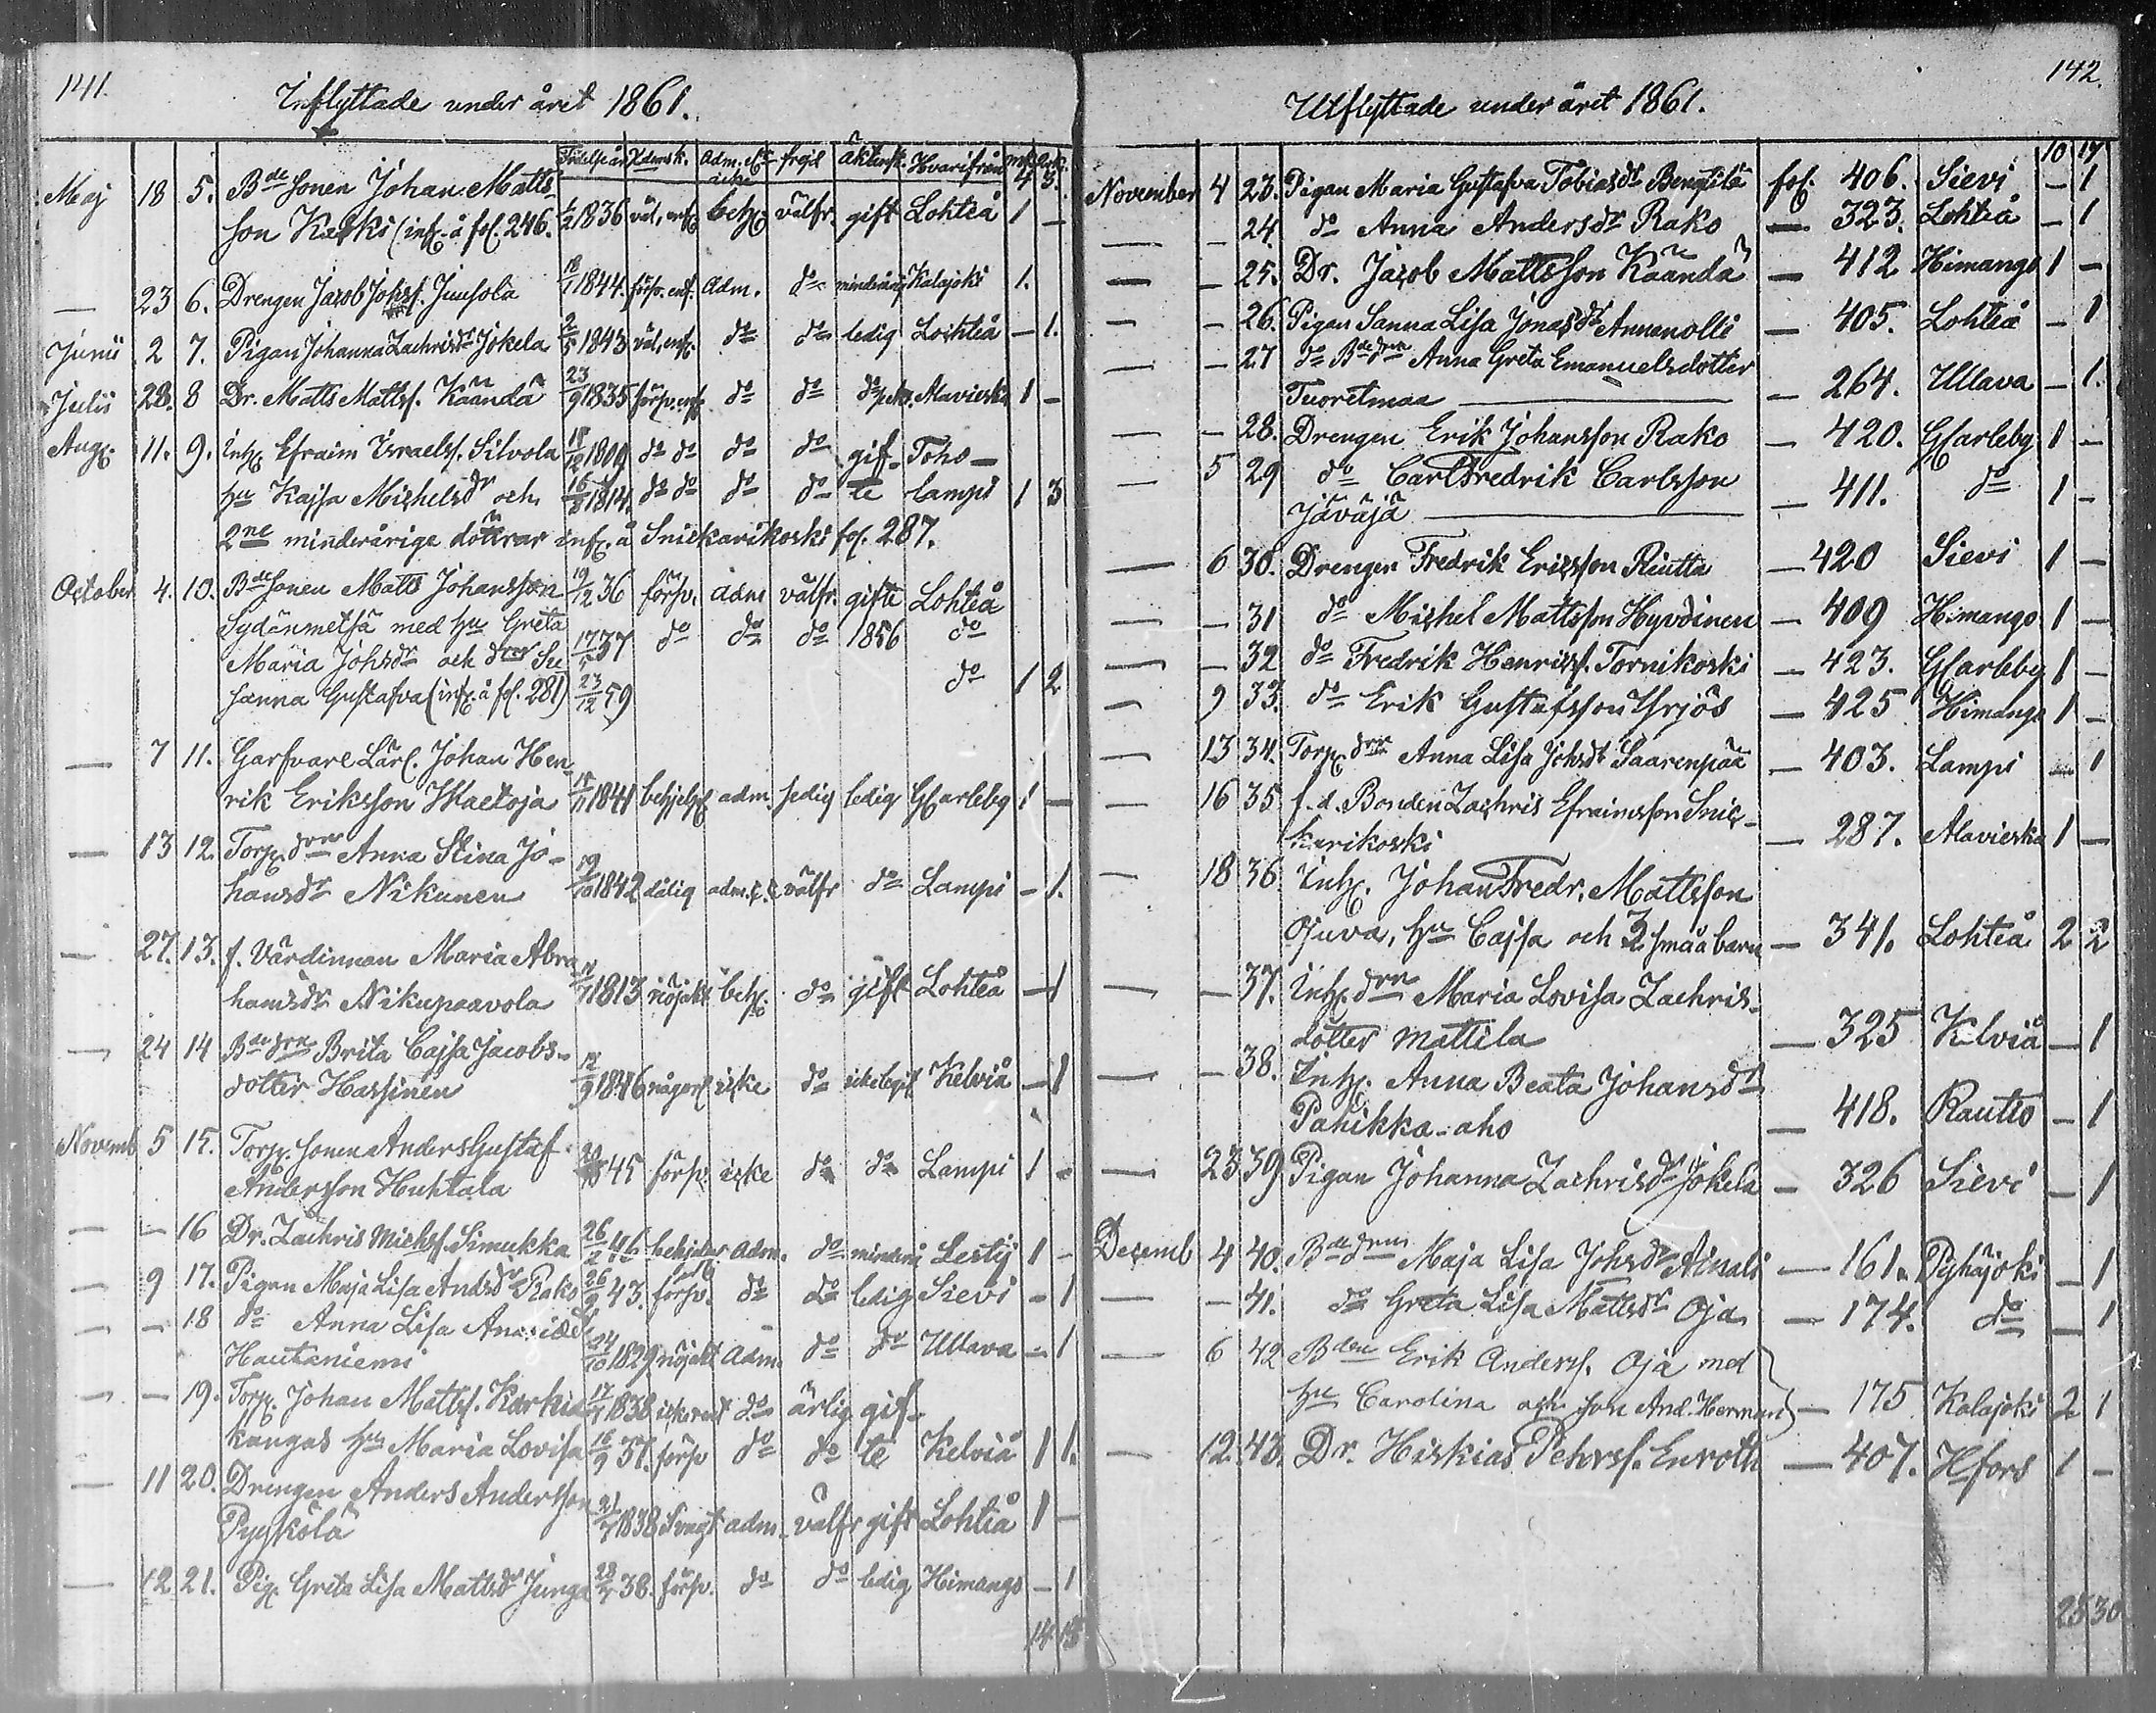 141.
Inflyttade under året 1861.
Födelseår Xdomsk. Adm. el. icke frejd äktensk. Hvarifrån mk. qvk.
4 3.
Maj 18 5. Bde sonen Johan Matts-
son Karki (inf. å fol. 246. 1/2 1836 väl, enf. beh. välfr. gift Lohteå 1 –
— 23 6. Drengen Jacob Johsf. Junsola 18/1 1844. försv. enf. Adm. do minderårig Kalajoki 1.
Junii 2 7. Pigan Johanna Zachrisdr Jokela 2/5 1843 väl, enf. do do ledig Lochteå – 1.
Julii 28. 8 Dr. Matts Mattsf. Käändä 23/9 1835 försv. enf. do do do Alavieska 1 –
Aug. 11. 9. Inh. Efraim Israelsf. Silvola 18/12 1809 do do do do gif- Toho-
hu Kajsa Michelsdr och 16/8 1814. do do do do te lampi 1 3
2ne minderårige döttrar inf. å Snickarikoski fol. 287.
October 4. 10. Bde sonen Matts Johansson 19/12 36 försv. adm välfr. gifte Lohteå
Sydänmetsä med hu Greta
Maria Johsdr och drr Su 17/5 37 do do do 1856 do
sanna Gustafva (inf. å fol. 281) 23/12 59 do 1 2
— 7 11. Garfvare Lärl. Johan Hen-
rik Eriksson Wäetoja 18/11 1841 behjelpl adm. sedig ledig GCarleby 1 –
— 13 12. Torp. drn Anna Stina Jo-
hansdr Nikunen 19/10 1842 dålig adm. välfr do Lampi – 1.
— 27. 13. f. Värdinnan Maria Abra
hamsdr Nikupaavola 1813 nöjakt. beh. do gift Lohteå – 1
— 24 14 Bde drn Brita Cajsa Jacobs-
dotter Hassinen 12/9 1846 någorl icke do icke legif Kelviå – 1
Novemb 5 15. Torp. sonen Anders Gustaf
Andersson Huhtala 45 försv. icke do do Lampi 1 –
— – 16 Dr. Zachris Michsf. Simukka 26/2 46 behjelp. adm. do minderå Lestij 1 –
— 9 17. Pigan Maja Lisa Andsdr Rako 26/9 43. försv. do do ledig Sievi – 1
— – 18 do Anna Lisa
Hautaniemi 24/10 1829 nöjakt Adm. do do Ullava – 1
— – 19. Torp. Johan Mattsf. Karkia 17/ 1838 icke do ärlig gif-
kangas hu Maria Lovisa 16/9 37. försv do do te Kelviå 1 1.
— 11 20. Drengen Anders Andersson
Pyykölä 21/7 1838 Svagt adm. välfr gift Lohteå 1 –
— 12 21. Pig. Greta Lisa Mattsdr Junga 38. försv. do do ledig Himango – 1
14. 18
142.
Utflyttade under året 1861.
10 17
November 4 23. Pigan Maria Gustafva Tobiasdr Bengtilä fol. 406. Sievi – 1
— – 24. do Anna Andersdr Rako — 323. Lohteå – 1
— – 25. Dr. Jacob Mattsson Käändä — 412 Himango 1 –
— – 26. Pigan Sanna Lisa Jonasdr Annanolli — 405. Lohteå – 1
— – 27 do Bde drn Anna Greta Emanuelsdotter
Tuoretmaa — 264. Ullava – 1.
— – 28. Drengen Erik Johansson Rako — 420. GCarleby 1 –
— 5 29 do Carl Fredrik Carlsson
Jäväjä — 411. do 1 –
— 6 30. Drengen Fredrik Ericsson Riutta — 420 Sievi 1 –
— – 31 do Michel Mattsson Hyvöinen — 409 Himango 1 –
— – 32 do Fredrik Henricsf. Tornikoski — 423. GCarleby 1 –
— 9 33. do Erik Gustafsson Yrjös — 425 Himango 1 –
— 13 34. Torp. drn Anna Lisa Johsdr Saarenpää — 403. Lampi – 1
— 16 35 f. d. Bonden Zachris Efraimsson Snic-
karikoski — 287. Alavieska 1 –
— 18 36. Inh. Johan Fredr. Mattsson
Ojuva, hu Cajsa och 3 små barn — 341. Lohteå 2 2
— – 37. Inh. drn Maria Lovisa Zachris-
dotter Mattila — 325 Kelviå – 1
— – 38. Inh. Anna Beata Johansdr
Pahikka-aho — 418. Rautio – 1
— 23 39 Pigan Johanna Zachrisdr Jokela — 326 Sievi – 1
Decemb 4 40. Bde drn Maja Lisa Johsdr Ainali — 161. Pyhäjoki – 1
— – 41. do Greta Lisa Mattsdr Oja — 174. do – 1
— 6 42 Bden Erik Andersf. Oja med
hu Carolina och son And. Herman — 175 Kalajoki 2 1
— 12. 43. Dr. Hiskias Pehrsf. Enroth — 407. Hfors 1 –
25 30